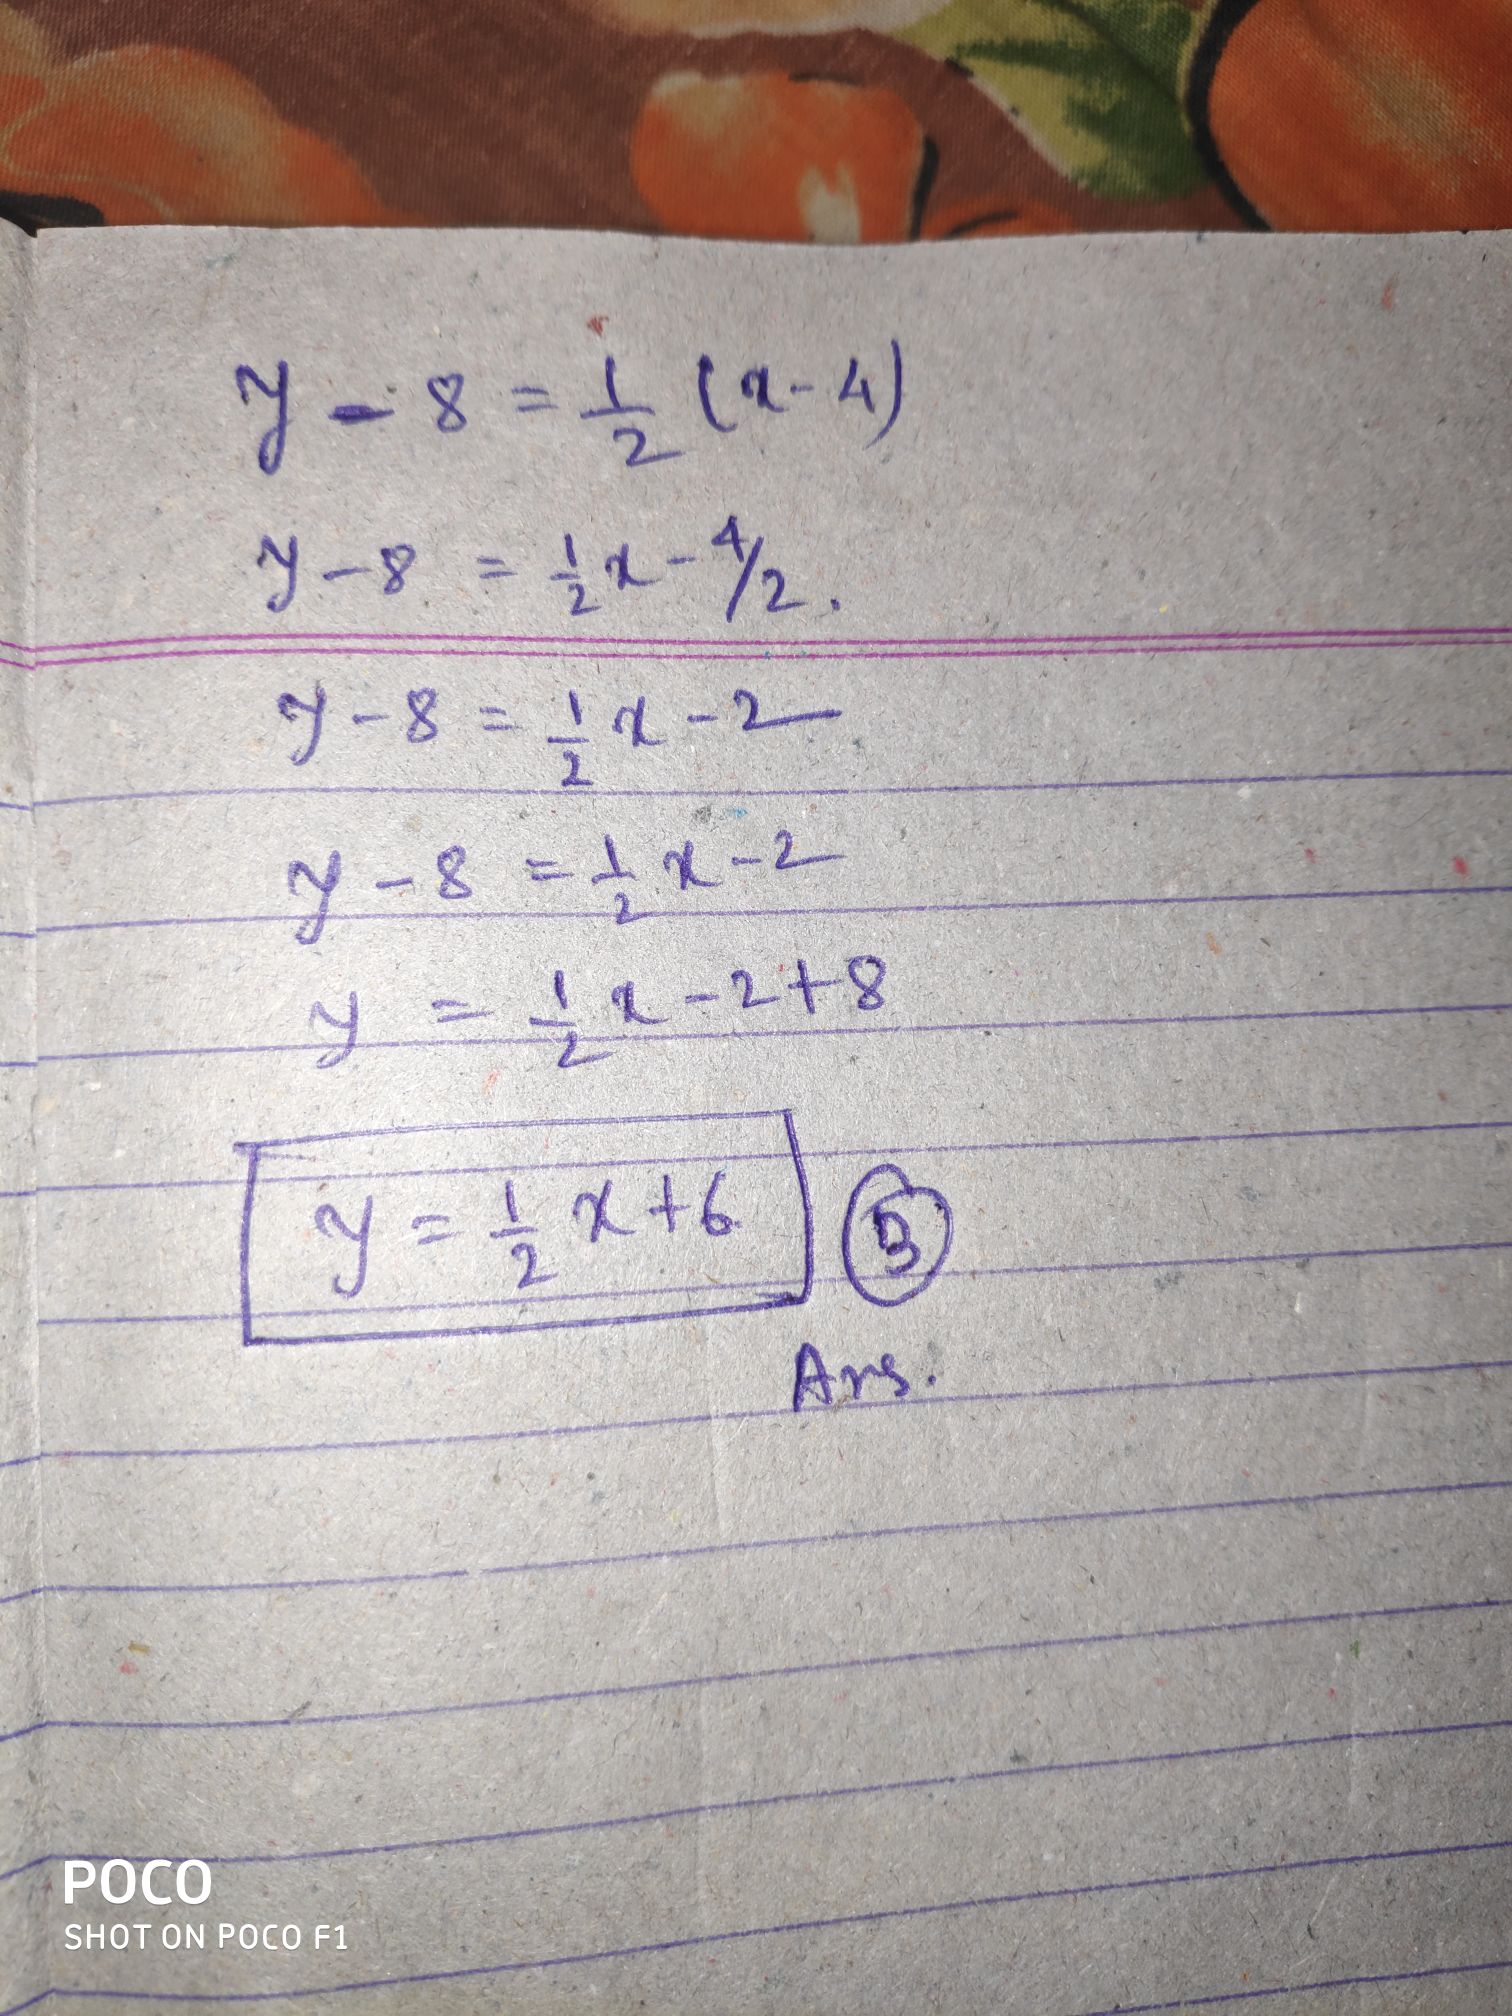 y - 8 = 1/2 (x - 4)
y - 8 = 1/2 x - 4/2.
y - 8 = 1/2 x - 2
y - 8 = 1/2 x - 2
y = 1/2 x - 2 + 8
y = 1/2 x + 6 B
Ans.
POCO
SHOT ON POCO F1